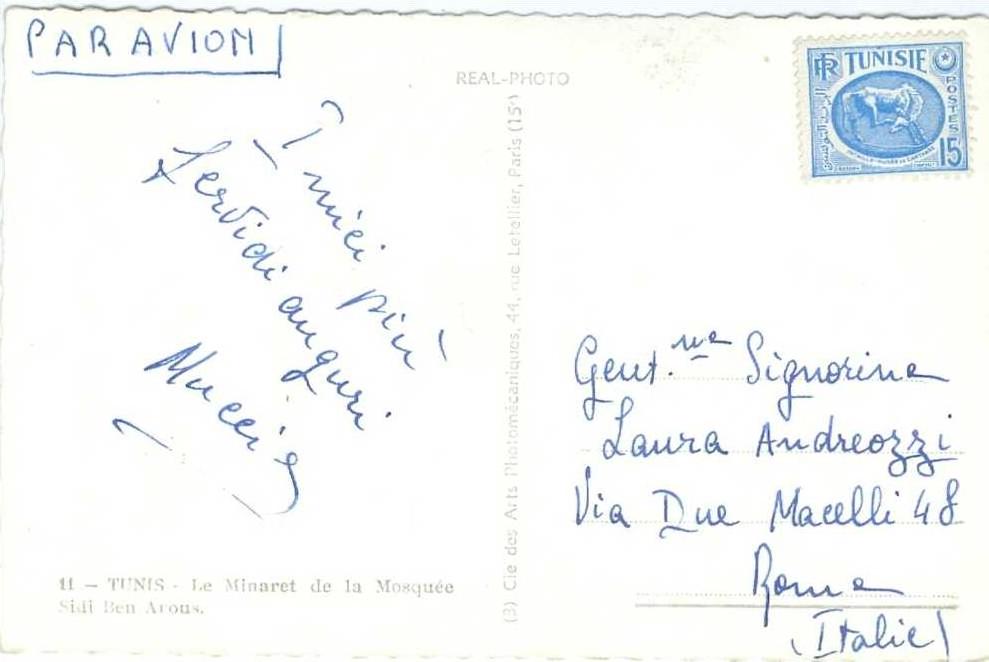 PAR AVION
REAL-PHOTO
RF TUNISIE
POSTES
15
I miei più
fervidi auguri
(3) Cie des Arts Photomécaniques, 44, rue Letellier, Paris (15e)
Gent.ma Signorina
Laura Andreozzi
Via Due Macelli 48
Roma
(Italie)
11 — TUNIS - Le Minaret de la Mosquée
Sidi Ben Arous.